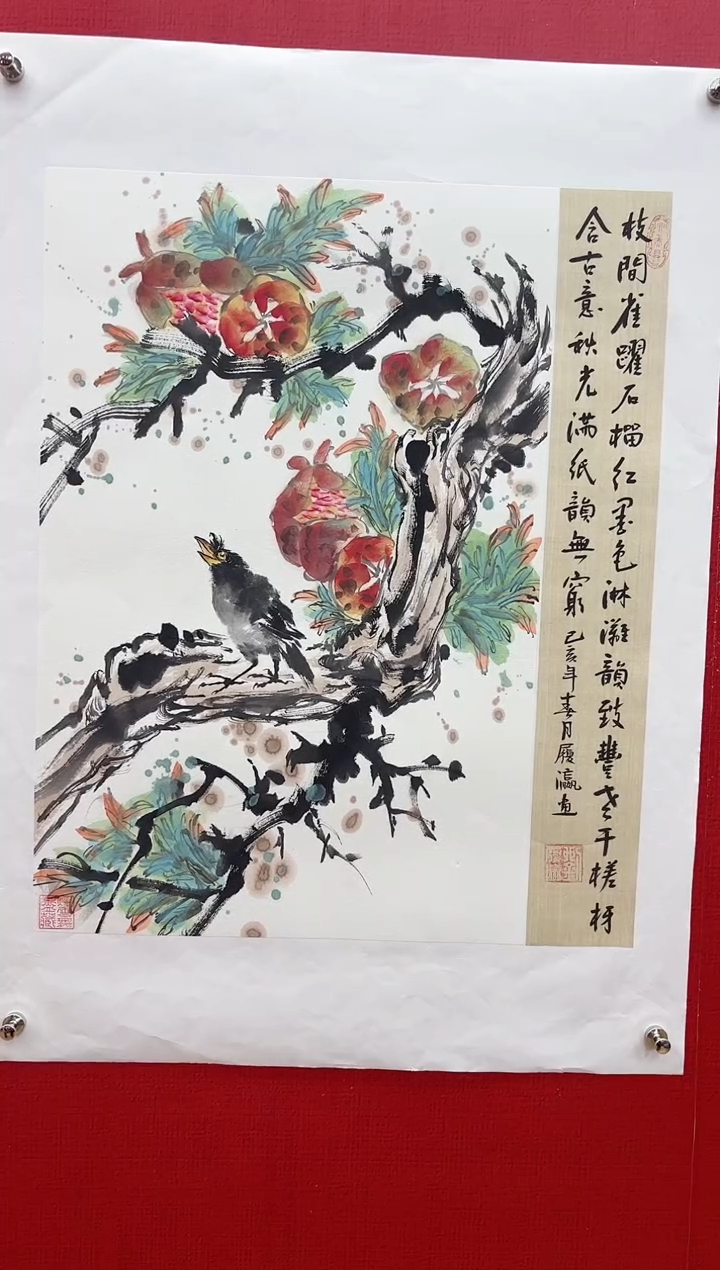 枝間雀躍石榴紅墨色淋灕韻致豐老干槎枒
含古意秋光滿紙韻無窮 己亥年春月履瀛画